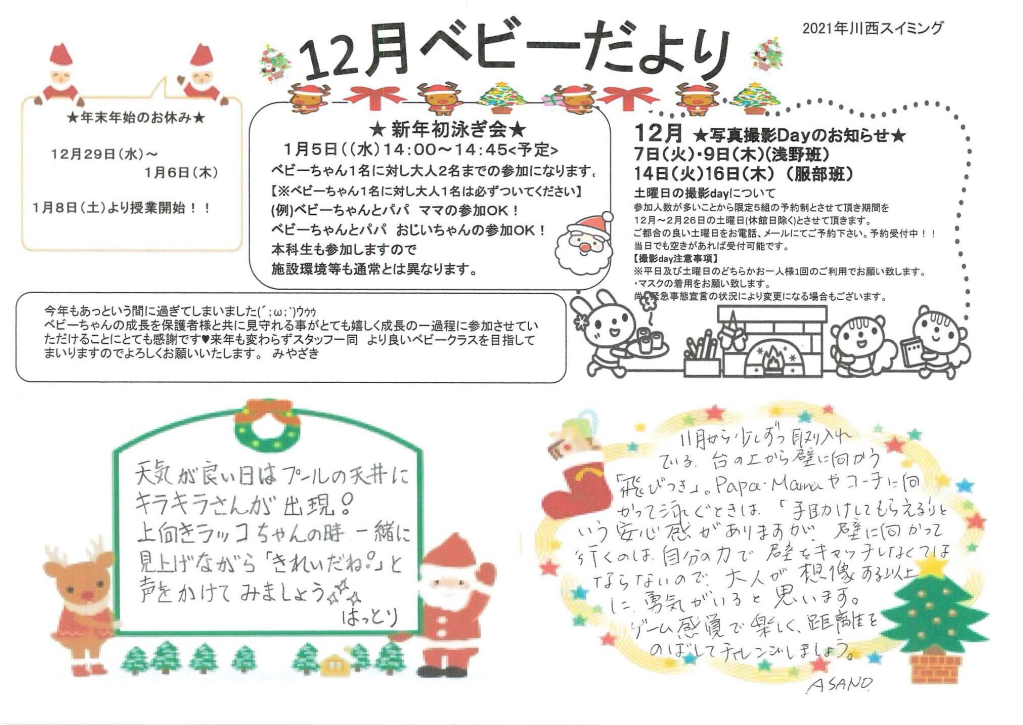 2021年川西スイミング
12月ベビーだより
★年末年始のお休み★
12月29日(水)～
1月6日(木)
1月8日(土)より授業開始！！
★新年初泳ぎ会★
1月5日((水)14:00～14:45<予定>
ベビーちゃん1名に対し大人2名までの参加になります。
【※ベビーちゃん1名に対し大人1名は必ずついてください】
(例)ベビーちゃんとパパ ママの参加OK！
ベビーちゃんとパパ おじいちゃんの参加OK！
本科生も参加しますので
施設環境等も通常とは異なります。
12月 ★写真撮影Dayのお知らせ★
7日(火)・9日(木)(浅野班)
14日(火)16日(木) (服部班)
土曜日の撮影dayについて
参加人数が多いことから限定5組の予約制とさせて頂き期間を
12月～2月26日の土曜日(休館日除く)とさせて頂きます。
ご都合の良い土曜日をお電話、メールにてご予約下さい。予約受付中！！
当日でも空きがあれば受付可能です。
【撮影day注意事項】
※平日及び土曜日のどちらかお一人様1回のご利用でお願い致します。
・マスクの着用をお願い致します。
尚、緊急事態宣言の状況により変更になる場合もございます。
今年もあっという間に過ぎてしまいました(´;ω;`)ｳｩｩ
ベビーちゃんの成長を保護者様と共に見守れる事がとても嬉しく成長の一過程に参加させてい
ただけることにとても感謝です♥来年も変わらずスタッフ一同 より良いベビークラスを目指して
まいりますのでよろしくお願いいたします。 みやざき
天気が良い日はプールの天井に
キラキラさんが出現！
上向きラッコちゃんの時 一緒に
見上げながら「きれいだね。」と
声をかけてみましょう☆☆
はっとり
11月から少しずつ取り入れ
ている、台の上から壁に向かう
「飛びつき」。Papa・Mamaやコーチに向
かって泳ぐときは、「手助けしてもらえる」と
いう安心感がありますが、壁に向かって
行くのは、自分の力で壁をキャッチしなくては
ならないので、大人が想像する以上
に勇気がいると思います。
ゲーム感覚で楽しく、距離を
のばしてチャレンジしましょう。
ASANO